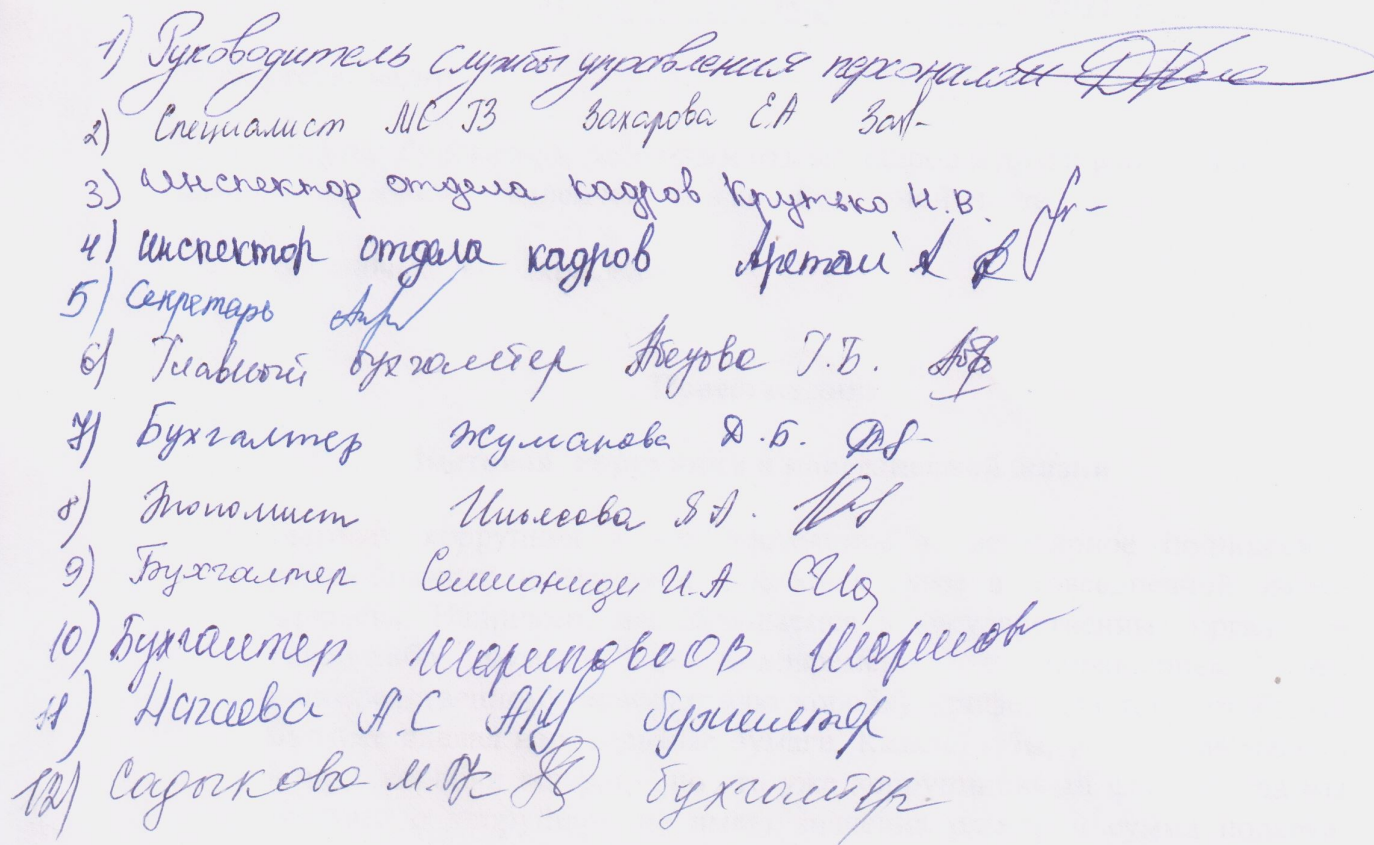 1) Руководитель службы управления персоналом
2) Специалист МС ГЗ Захарова Е.А Зах
3) Инспектор отдела кадров Крутько Н.В.
4) инспектор отдела кадров А
5) Секретарь
6) Главный бухгалтер Г.Б.
7) Бухгалтер Жуманова Д.Б.
8) Экономист Ильясова А.
9) Бухгалтер Семиониди И.А
10) Бухгалтер Шарипова О В Шарипов
11) Нагаева А.С бухгалтер
12) Садыкова М. бухгалтер.